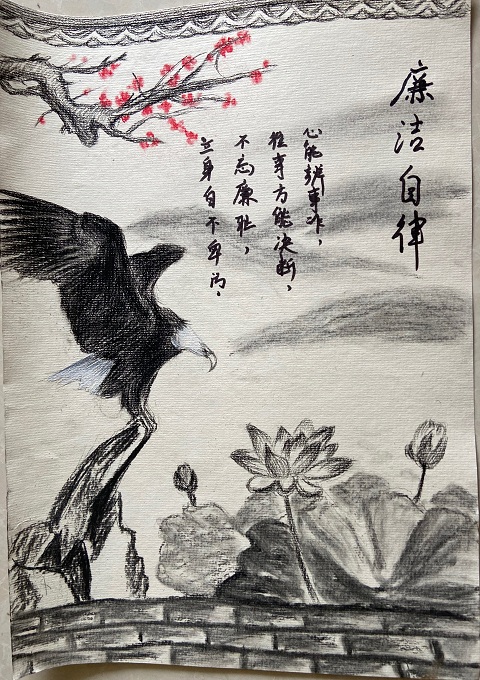 廉洁自律
心能辨事非，
处事方能决断，
不忘廉耻，
立身自不卑污。